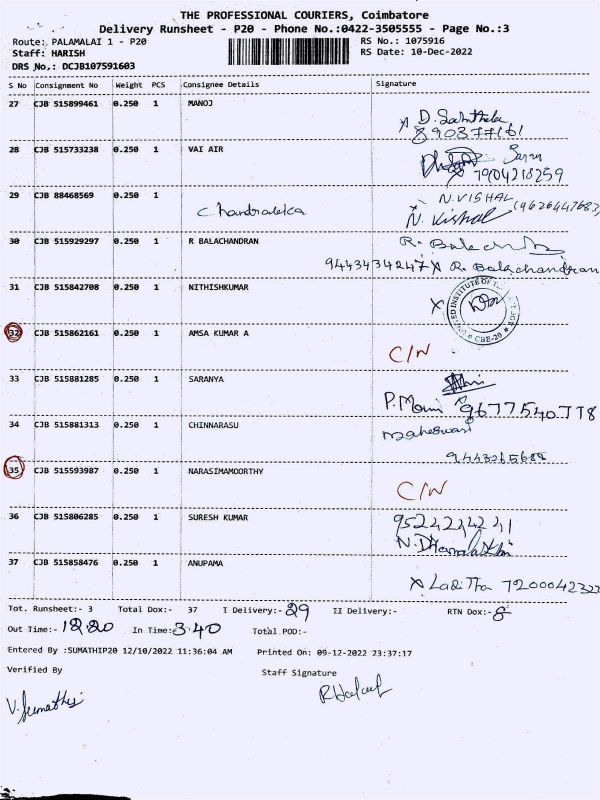 THE PROFESSIONAL COURIERS, Coimbatore
Delivery Runsheet - P20 - Phone No.:0422-3505555 - Page No.:3
Route: PALAMALAI 1 - P20
RS No.: 1075916
Staff: HARISH
RS Date: 10-Dec-2022
DRS No.: DCJB107591603
S No Consignment No Weight PCS Consignee Details Signature
27 CJB 515899461 0.250 1 MANOJ
28 CJB 515733238 0.250 1 VAI AIR
7904218259
29 CJB 88468569 0.250 1 N.VISHAL (9626447683)
N. Vishal
30 CJB 515929297 0.250 1 R BALACHANDRAN
9443434247 X R. Balachandran
31 CJB 515842708 0.250 1 NITHISHKUMAR X
CBE-20
32 CJB 515862161 0.250 1 AMSA KUMAR A
C/N
33 CJB 515881285 0.250 1 SARANYA
P.Mani 9677540778
34 CJB 515881313 0.250 1 CHINNARASU maheswari
35 CJB 515593987 0.250 1 NARASIMAMOORTHY
C/N
36 CJB 515806285 0.250 1 SURESH KUMAR
37 CJB 515858476 0.250 1 ANUPAMA
X Lalitha 7200042323
Tot. Runsheet:- 3 Total Dox:- 37 I Delivery:- 29 II Delivery:- RTN Dox:- 8
Out Time:- 12.20 In Time:- 3.40 Total POD:-
Entered By :SUMATHIP20 12/10/2022 11:36:04 AM Printed On: 09-12-2022 23:37:17
Verified By Staff Signature
V. Sumathi